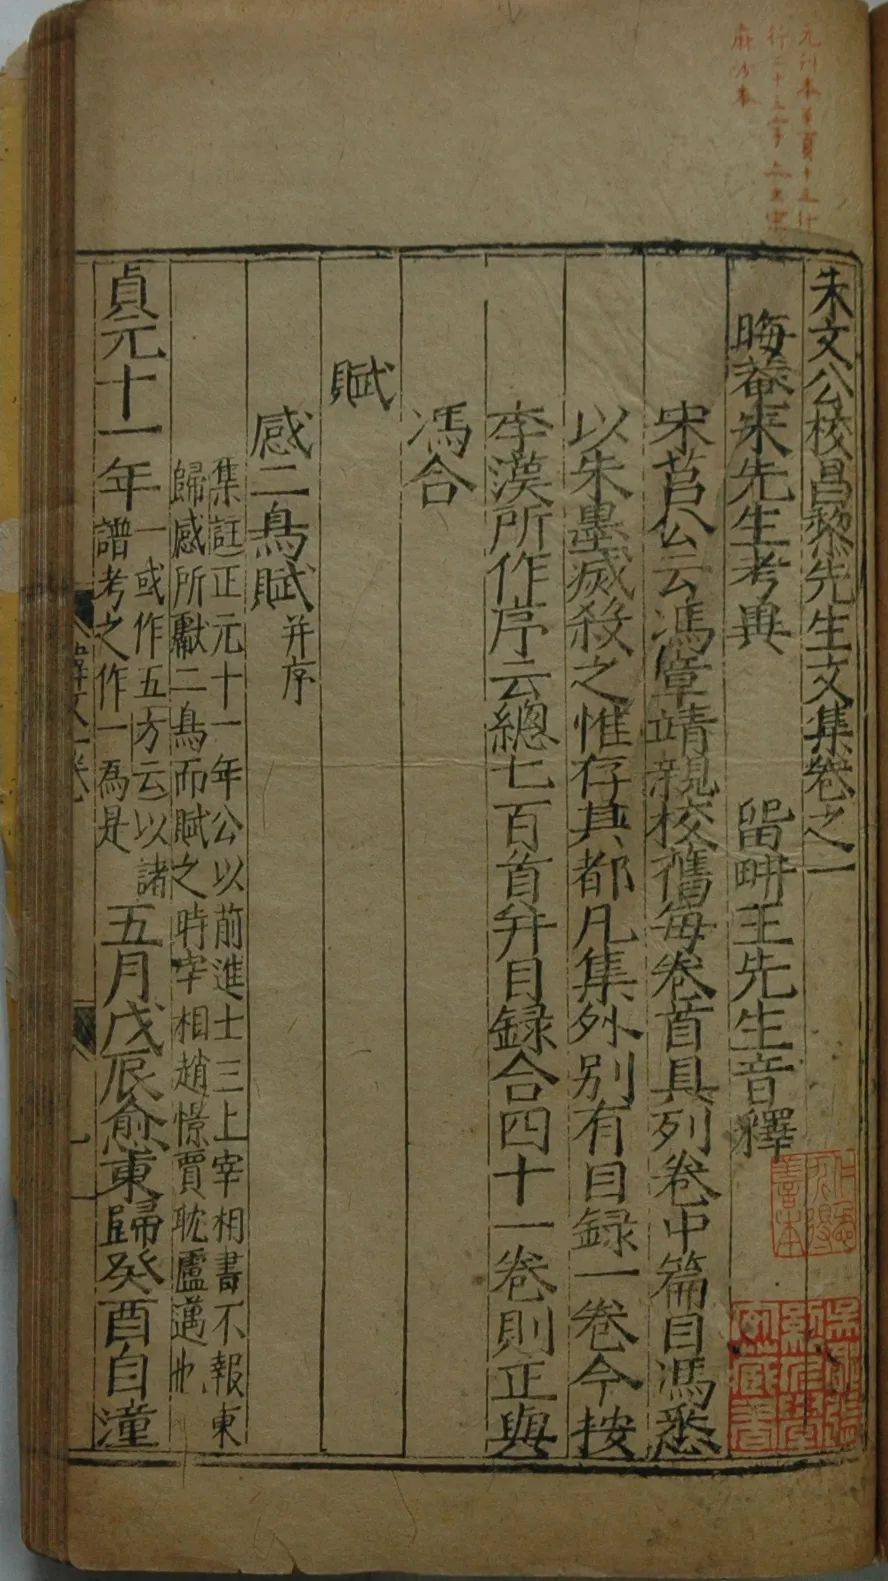 元刊本
麻沙本
朱文公校昌黎先生文集卷之一
晦菴朱先生考異 留畊王先生音釋
宋莒公云馮章靖親校舊每卷首具列卷中篇目馮悉
以朱墨滅殺之惟存其都凡集外別有目録一卷今按
李漢所作序云總七百首并目録合四十一卷則正與
馮合
賦
感二鳥賦并序
集註正元十一年公以前進士三上宰相書不報東
歸感所獻二鳥而賦之時宰相趙憬賈耽盧邁也
貞元十一年一或作五方云以諸譜考之作一為是五月戊辰愈東歸癸酉自潼
善本